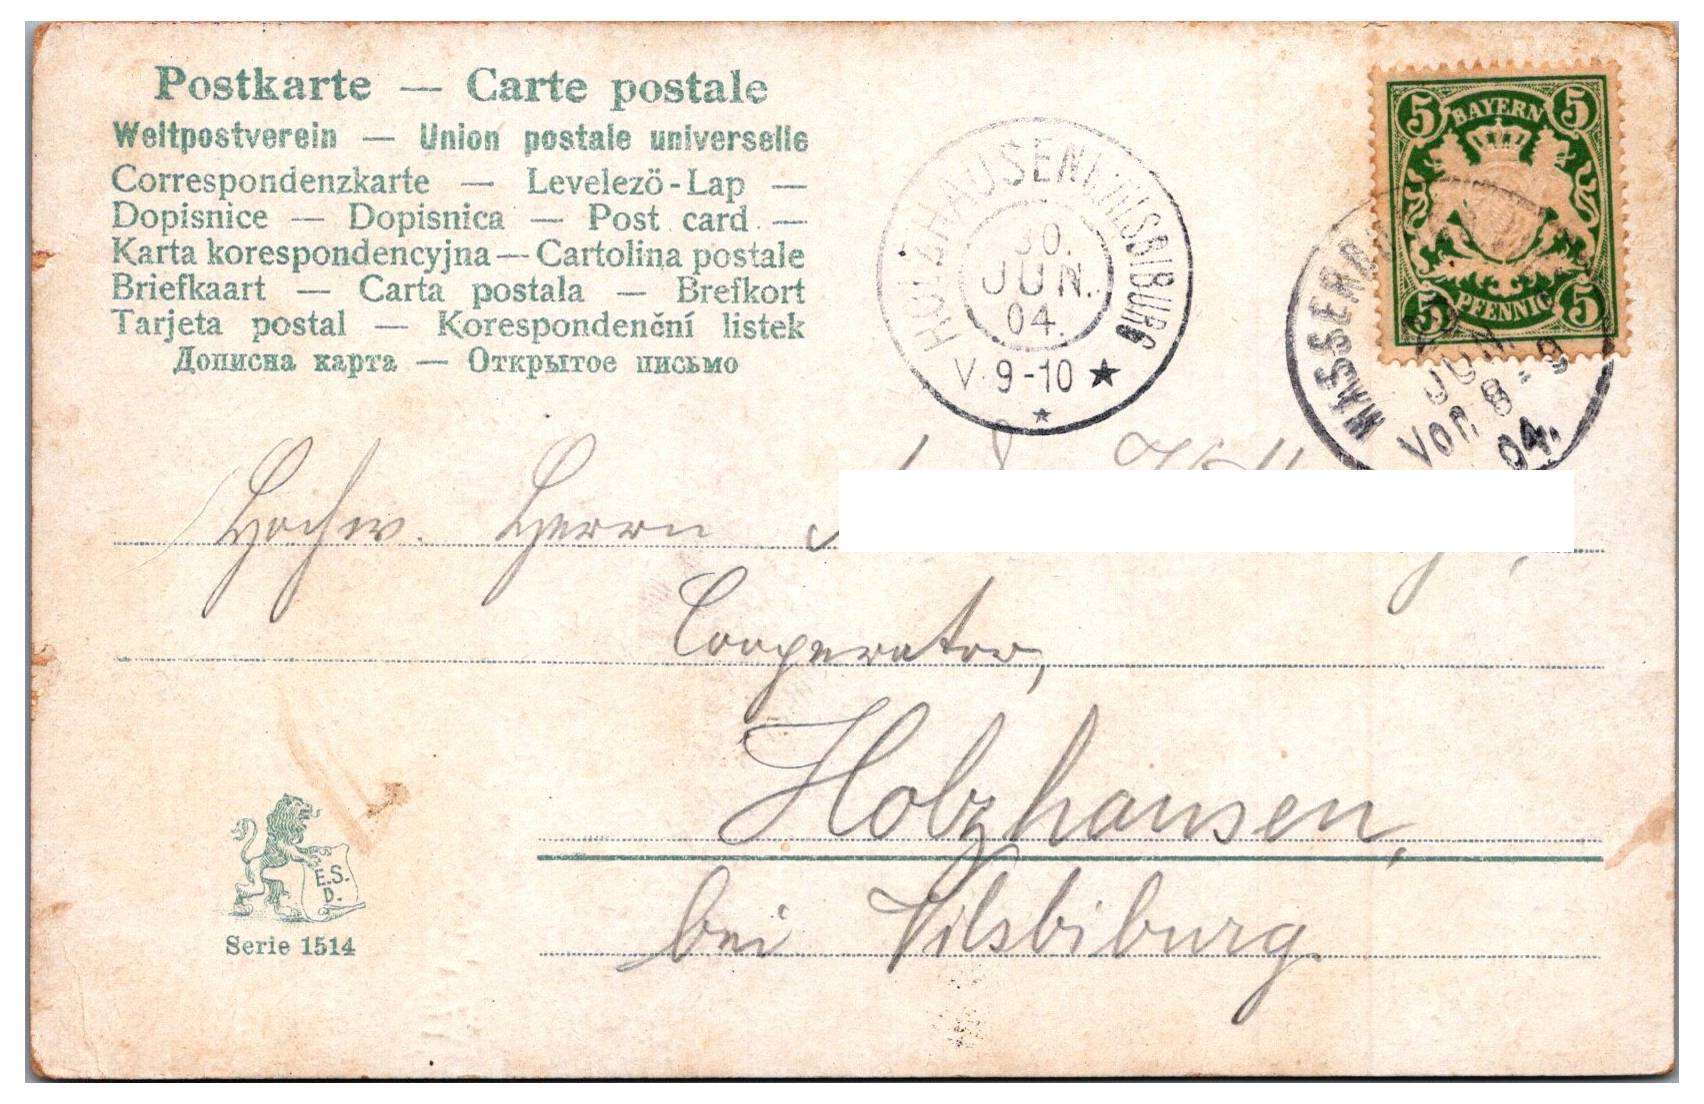 Postkarte — Carte postale
Weltpostverein — Union postale universelle
Correspondenzkarte — Levelező-Lap —
Dopisnice — Dopisnica — Post card —
Karta korespondencyjna — Cartolina postale
Briefkaart — Carta postala — Brefkort
Tarjeta postal — Korespondenční listek
Дописна карта — Открытое письмо
HOLZHAUSEN B/VILSBIBURG
30.
JUN.
04.
V. 9-10 ★
5 BAYERN 5
5 PFENNIG 5
JUN
Von 8-9
04.
Hochw. Herrn
Cooperator,
Holzhausen,
bei Vilsbiburg.
E.S.
D.
Serie 1514